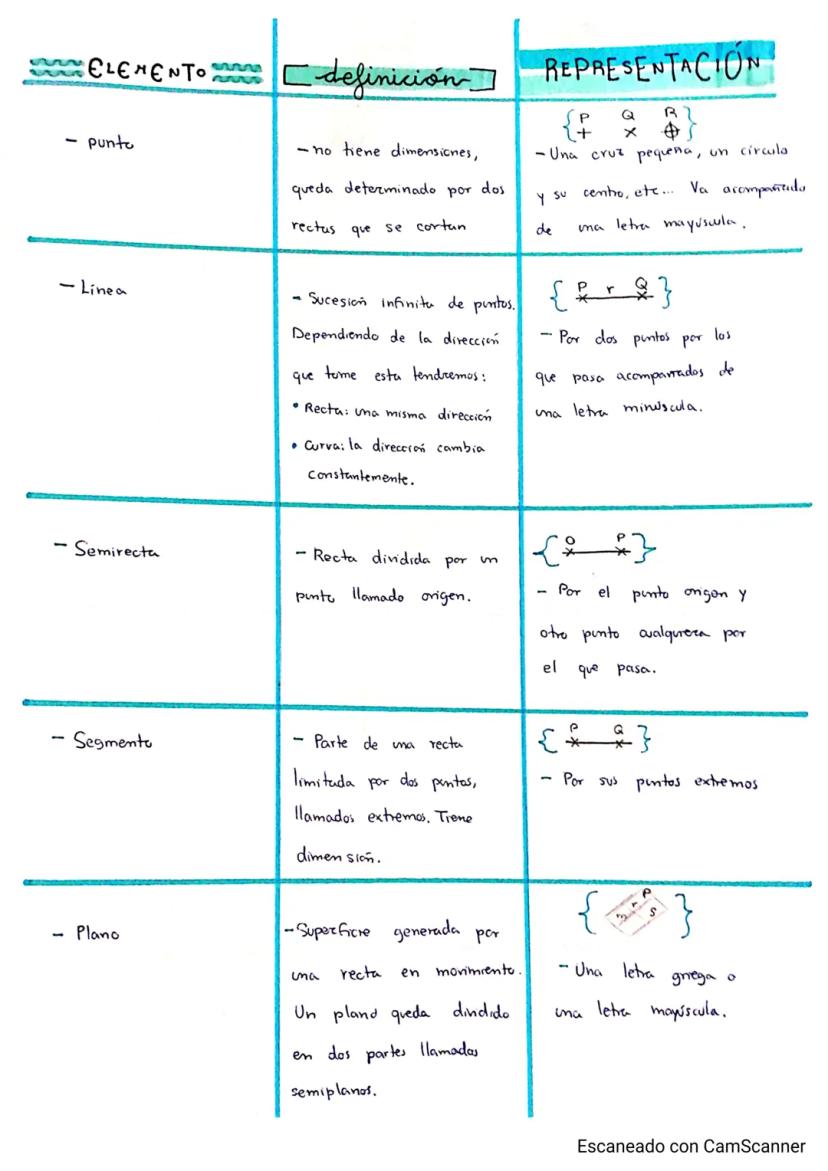 ELEMENTO
definición
REPRESENTACIÓN
- punto
- no tiene dimensiones,
queda determinado por dos
rectas que se cortan
{ P Q R }
- Una cruz pequeña, un círculo
y su centro, etc... Va acompañado
de una letra mayúscula.
- Línea
- Sucesión infinita de puntos.
Dependiendo de la dirección
que tome esta tendremos:
• Recta: una misma dirección
• Curva: la dirección cambia
constantemente.
{ P r Q }
- Por dos puntos por los
que pasa acompañados de
una letra minúscula.
- Semirecta
- Recta dividida por un
punto llamado origen.
{ O P }
- Por el punto origen y
otro punto cualquiera por
el que pasa.
- Segmento
- Parte de una recta
limitada por dos puntos,
llamados extremos. Tiene
dimensión.
{ P Q }
- Por sus puntos extremos
- Plano
- Superficie generada por
una recta en movimiento.
Un plano queda dividido
en dos partes llamadas
semiplanos.
{ m r P S }
- Una letra griega o
una letra mayúscula.
Escaneado con CamScanner